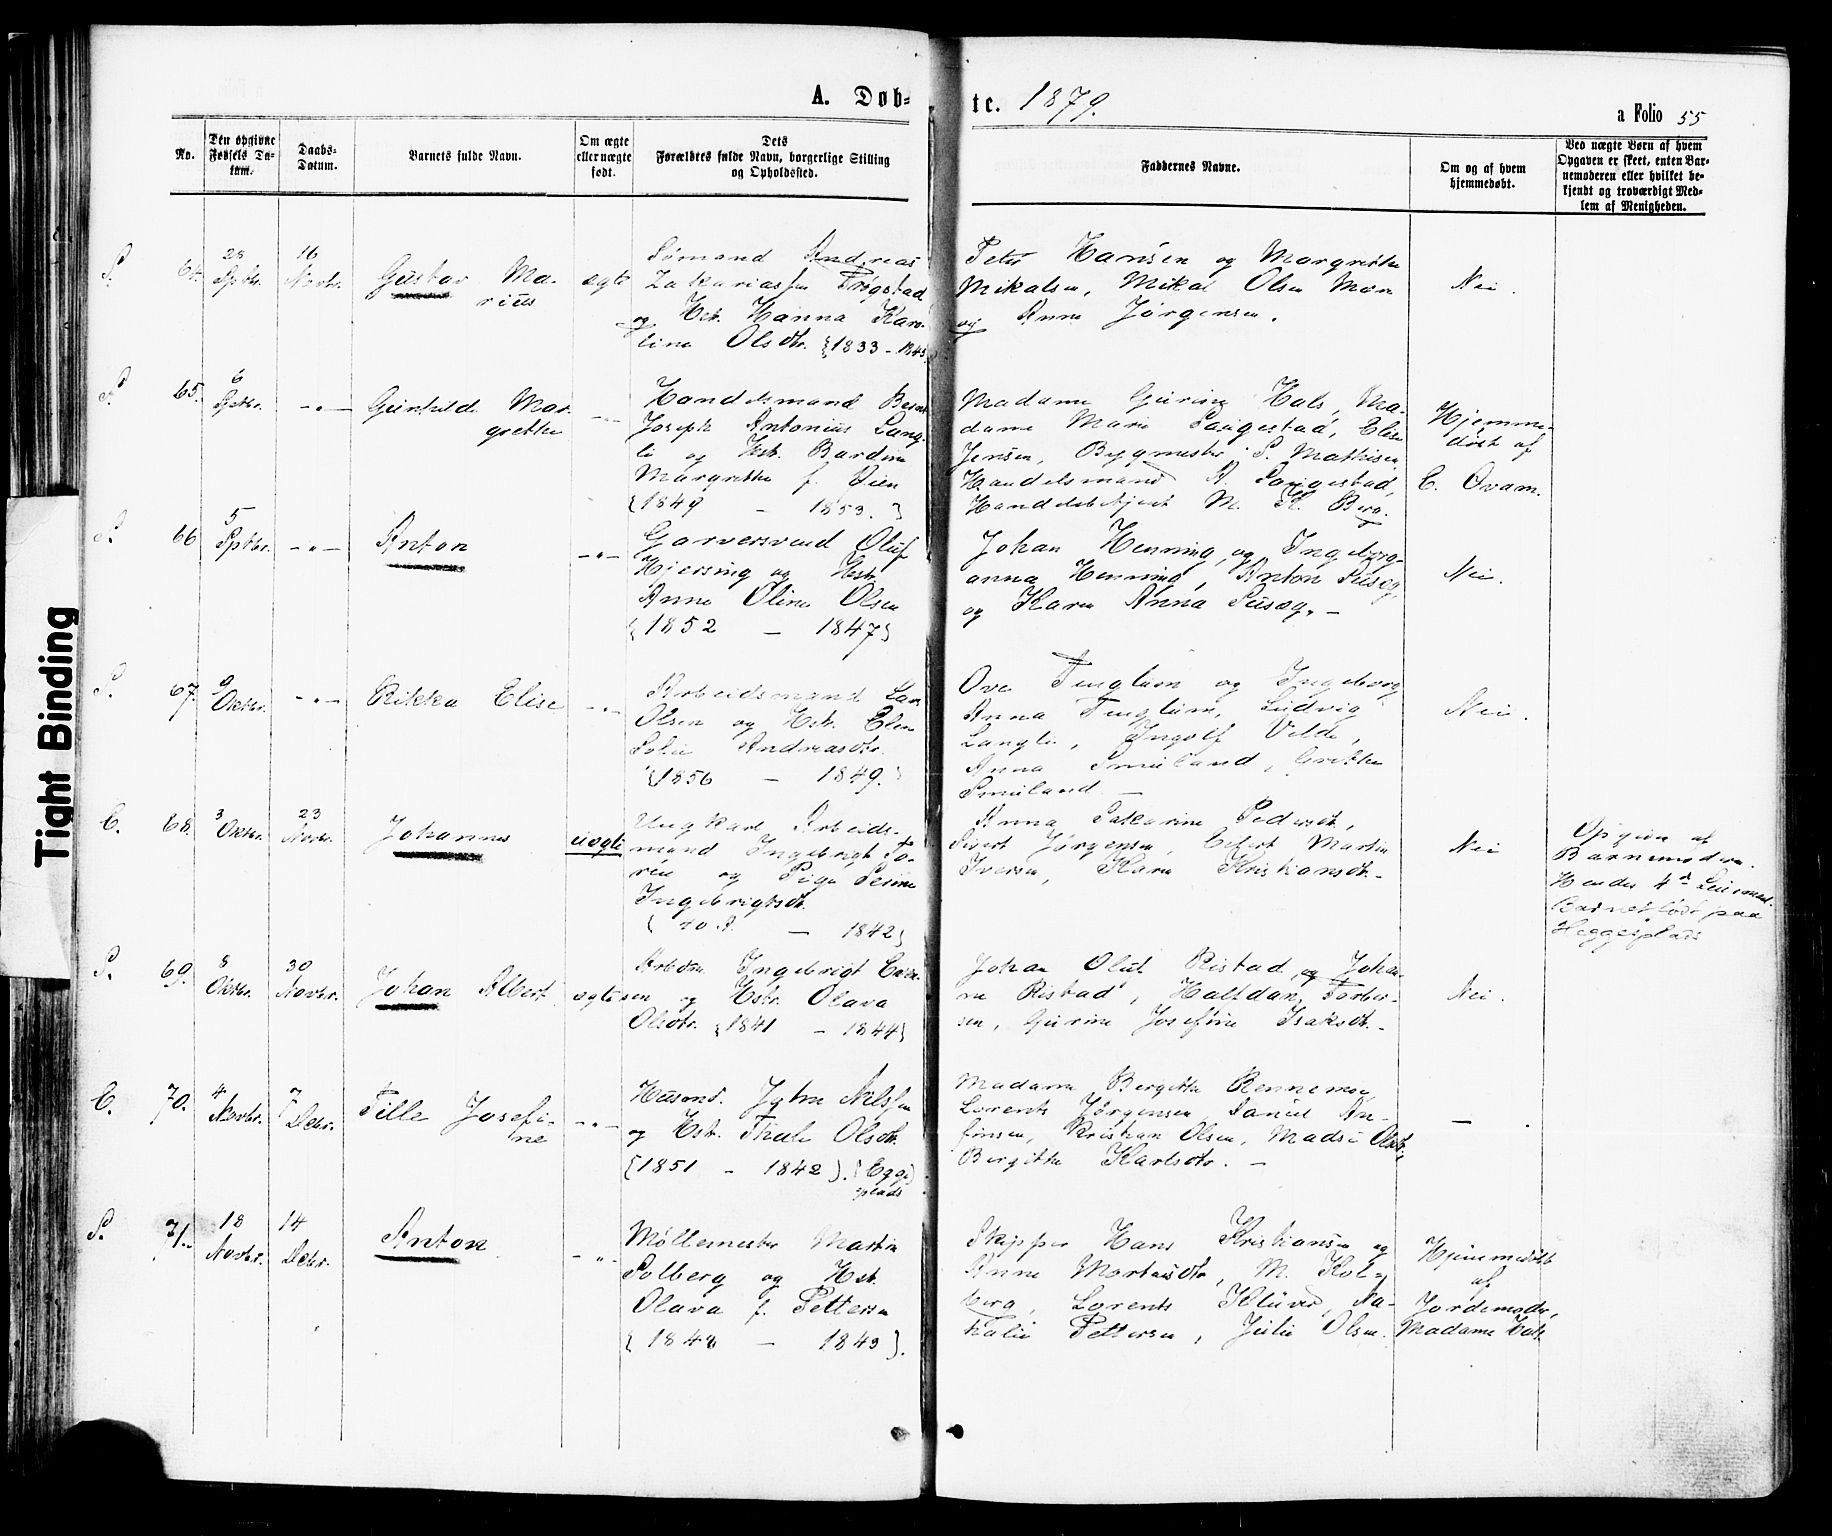 A. Døb-
te. 1879.
a Folio 55
No.
Den opgivne
Fødsels Da-
tum.
Daabs-
Datum.
Barnets fulde Navn.
Om ægte
eller uægte
født.
Dets
Forældres fulde Navn, borgerlige Stilling
og Opholdssted.
Faddernes Navne.
Om og af hvem
hjemmedøbt.
Ved uægte Børn af hvem
Opgaven er skeet, enten Bar-
nemoderen eller hvilket be-
kjendt og troværdigt Med-
lem af Menigheden.
S. 64. 28 Sptbr. 16 Novbr. Gustav Ma-
rius
ægte
Sømand Andreas
Zakariassen Trygstad
og Hst. Hanna Karo-
line Olsdtr. {1833 - 1845
Peter Hansen og Margrethe
Mikalsen, Mikal Olsen Moen
og Anne Jørgensen.
Nei.
S. 65. 6 Sptbr. -"- Gunhilde Mar-
grethe
-"-
Handelsmand Bernt
Joseph Antonius Lang-
li og Hst. Bardine
Margrethe f. Øien
{1849 - 1853.}
Madame Gurine Hals, Ma-
dame Marie Saugestad, Elise
Jensen, Bygmester S. Mathisen,
Handelsmand A. Saugestad,
Handelsbetjent M. K. Berg.
Hjemme-
døbt af
C. Qvam.
S. 66 5 Sptbr. -"- Anton
-"-
Garversvend Oluf
Hjersing og Hst.
Anne Oline Olsen
{1852 - 1847}
Johan Henning og Ingeborg-
anna Henning, Anton Suseg,
og Karen Anna Suseg. -
Nei.
S. 67. 9 Oktbr. -"- Rikka Elise
-"-
Arbeidsmand Lars
Olsen og Hst. Elen
Sofie Andreasdtr.
{1856 - 1849.}
Ove Tinglum og Ingeborg
Anna Tinglum, Ludvig
Langli, Ingolf Velde,
Anna Småland, Grethe
Småland -
Nei.
E. 68. 3 Oktbr. 23 Novbr. Johannes
uægte
Ungkarl Arbeids-
mand Ingebrigt To-
rén og Pige Serine
Ingebrigtsdtr.
{40 A. - 1842}
Anna Katarine Pedersdt.,
Sivert Jørgensen, Edvart Martin
Iversen, Karen Kristiansdt. -
Nei
Opgivn. af
Barnemoderen.
Hendes 4de Leiermaal.
Barnet født paa
Heggesplads
S. 69. 8 Oktbr. 30 Novbr. Johan Albert
ægte
Arbdsm. Ingebrigt Lar-
sen og Hstr. Olava
Olsdtr. {1841 - 1844}
Johan Oluf Ristad og Johan-
ne Ristad, Halfdan Torber-
sen, Gurine Josefine Isaksdt. -
Nei.
E. 70. 4 Novbr. 7 Debr. Tille Josefi-
ne
-"-
Husmd. John Nilssen
og Hst. Thale Olsdt.
{1851 - 1842}. (Egge
plads
Madame Bergitte Rennemo,
Lorents Jørgensen, Daniel An-
finsen, Kristian Olsen, Madsi Olsdtr.,
Bergitte Karlsdtr. -
- .
S. 71. 18 Novbr. 14 Debr. Anton
-"-
Møllemester Martin
Solberg og Hst.
Olava f. Pettersen
{1848 - 1843}.
Skipper Hans Kristiansen og
Anne Martinsdtr, M. Kol-
berg, Lorents Klüver, Na-
talie Pettersen, Julie Olsen.
Hjemmedøbt
af
Jordemoder,
Madame Holt
Tight Binding